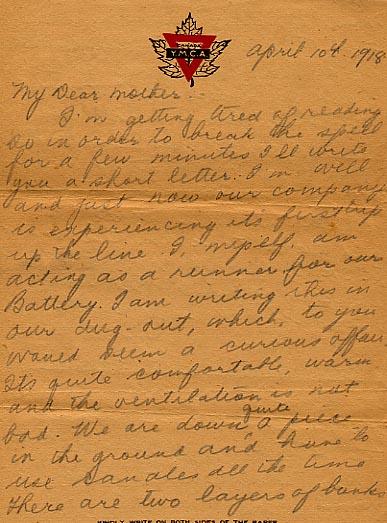 CANADA
Y.M.C.A
April 10th 1918
My Dear Mother. –
I'm getting tired of reading
so in order to break the spell
for a few minutes I'll write
you a short letter. I'm well
and just now our company
is experiencing its first trip
up the line. I, myself, am
acting as a runner for our
Battery. I am writing this in
our dug-out, which, to you
would seem a curious affair
Its quite comfortable, warm
and the ventilation is not
bad. We are down quite a piece
in the ground and have to
use candles all the time
There are two layers of bunks
KINDLY WRITE ON BOTH SIDES OF THE PAPER